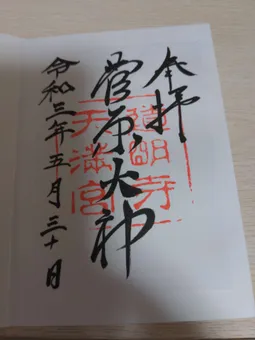 奉拝
道明寺
天満宮
菅原大神
令和三年五月三十日